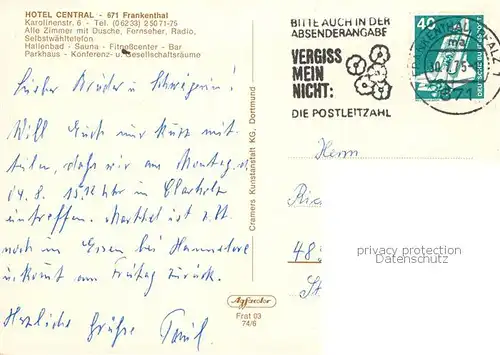 HOTEL CENTRAL - 671 Frankenthal
Karolinenstr. 6 - Tel. (0 62 33) 2 50 71-75
Alle Zimmer mit Dusche, Fernseher, Radio,
Selbstwähltelefon
Hallenbad - Sauna - Fitneßcenter - Bar
Parkhaus - Konferenz- u. Gesellschaftsräume
Lieber Bruder u. Schwägerin!
Will Euch nur kurz mit-
teilen, daß wir am Montag, d.
04.8. Uhr in
eintreffen. ist z.Zt.
noch in Essen bei
u. kommt am Freitag zurück.
Herzliche Grüße
Cramers Kunstanstalt KG, Dortmund
Agfacolor
Frat 03
74/6
BITTE AUCH IN DER
ABSENDERANGABE
VERGISS
MEIN
NICHT:
DIE POSTLEITZAHL
40
DEUTSCHE BUNDESPOST
FRANKENTHAL, PFALZ 1
671
Herrn
48
privacy protection
ansichtskarten-center.de